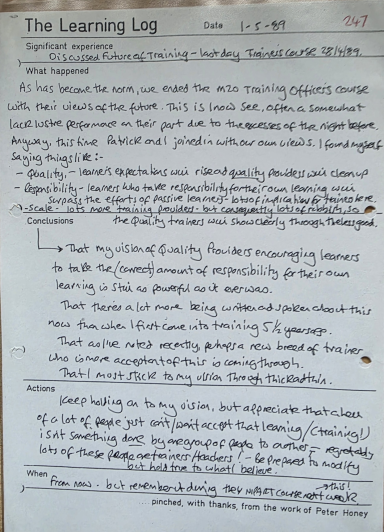 The Learning Log Date 1-5-89 247
Significant experience
Discussed Future of Training - last day Trainers Course 28/4/89.
What happened
As has become the norm, we ended the M20 Training Officers course
with their views of the future. This is I now see, often a somewhat
lack lustre performance on their part due to the excesses of the night before.
Anyway, this time Patrick and I joined in with our own views. I found myself
saying things like :-
- Quality - learners expectations will rise and quality providers will clean up
- Responsibility - learners who take responsibility for their own learning will
surpass the efforts of passive learners - lots of implications for trainers here.
- Scale - lots more training providers - but consequently lots of rubbish, so
the Quality trainers will show clearly through the less good.
Conclusions
That my vision of Quality Providers encouraging learners
to take the (correct) amount of responsibility for their own
learning is still as powerful as it ever was.
That there's a lot more being written and spoken about this
now than when I first came into training 5½ years ago.
That as I've noted recently, perhaps a new breed of trainer
who is more acceptant of this is coming through.
That I must STICK to my vision through thick and thin.
Actions
Keep holding on to my vision, but appreciate that a
of a lot of people just can't/won't accept that learning/(training!)
isn't something done by one group of people to another - regrettably
lots of these people are trainers/teachers! - Be prepared to modify
but hold true to what I believe.
When
From now - but remember it during the MPACT course next week
this!
.... pinched, with thanks, from the work of Peter Honey